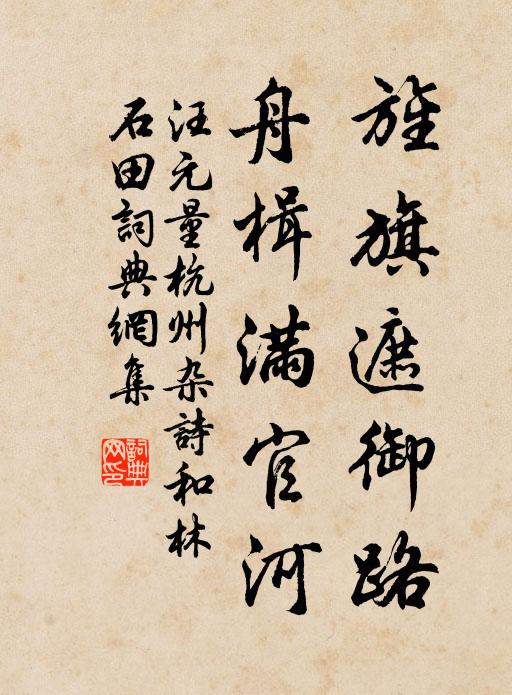 旌旗遮御路
舟楫滿官河
汪元量杭州杂詩和林
石田詞典網集
詞典网印